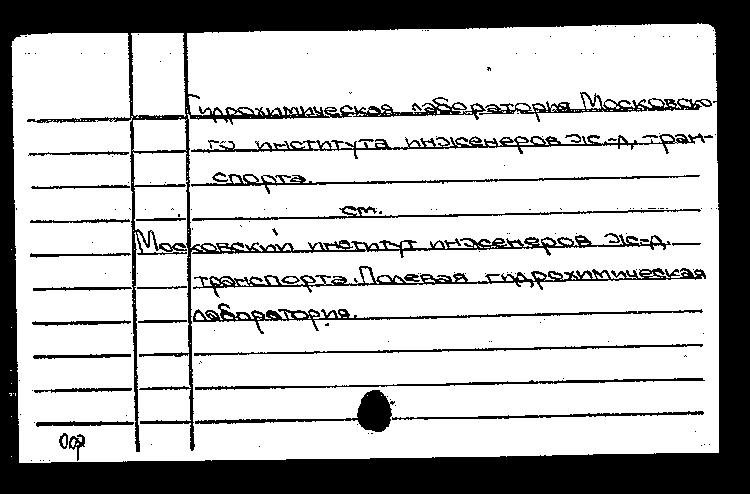 Гидрохимическая лаборатория Московско-
го института инженеров ж.-д. тран-
спорта.
см.
Московский институт инженеров ж.-д.
транспорта. Полевая гидрохимическая
лаборатория.